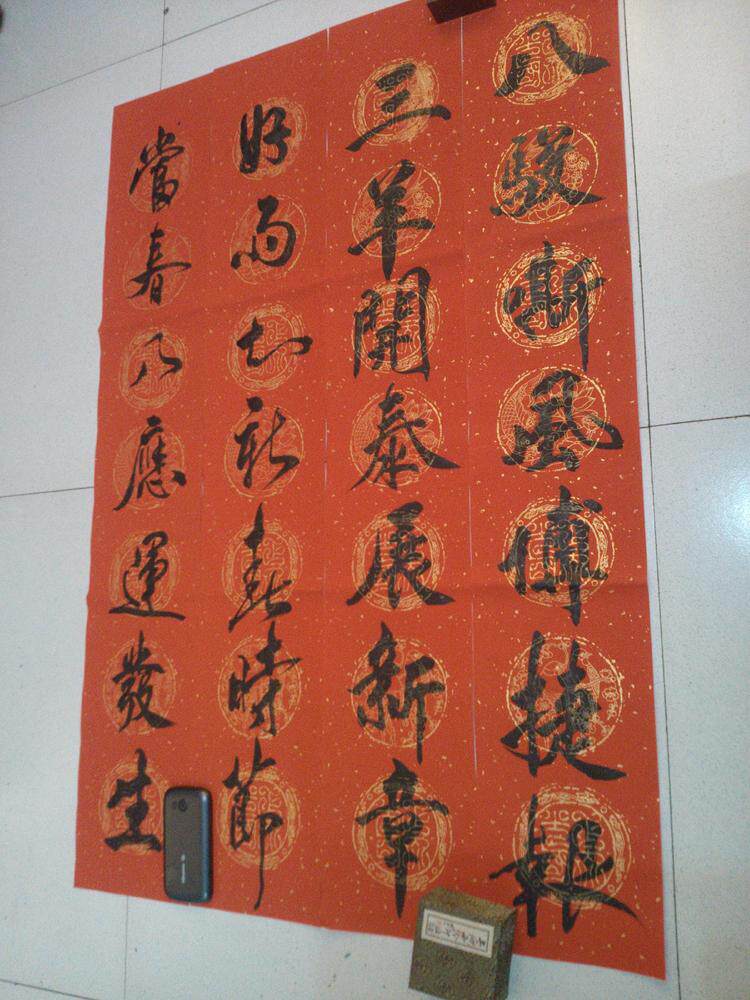 八駿嘶風傳捷報
三羊開泰展新章
好雨知新春時節
當春乃應運發生